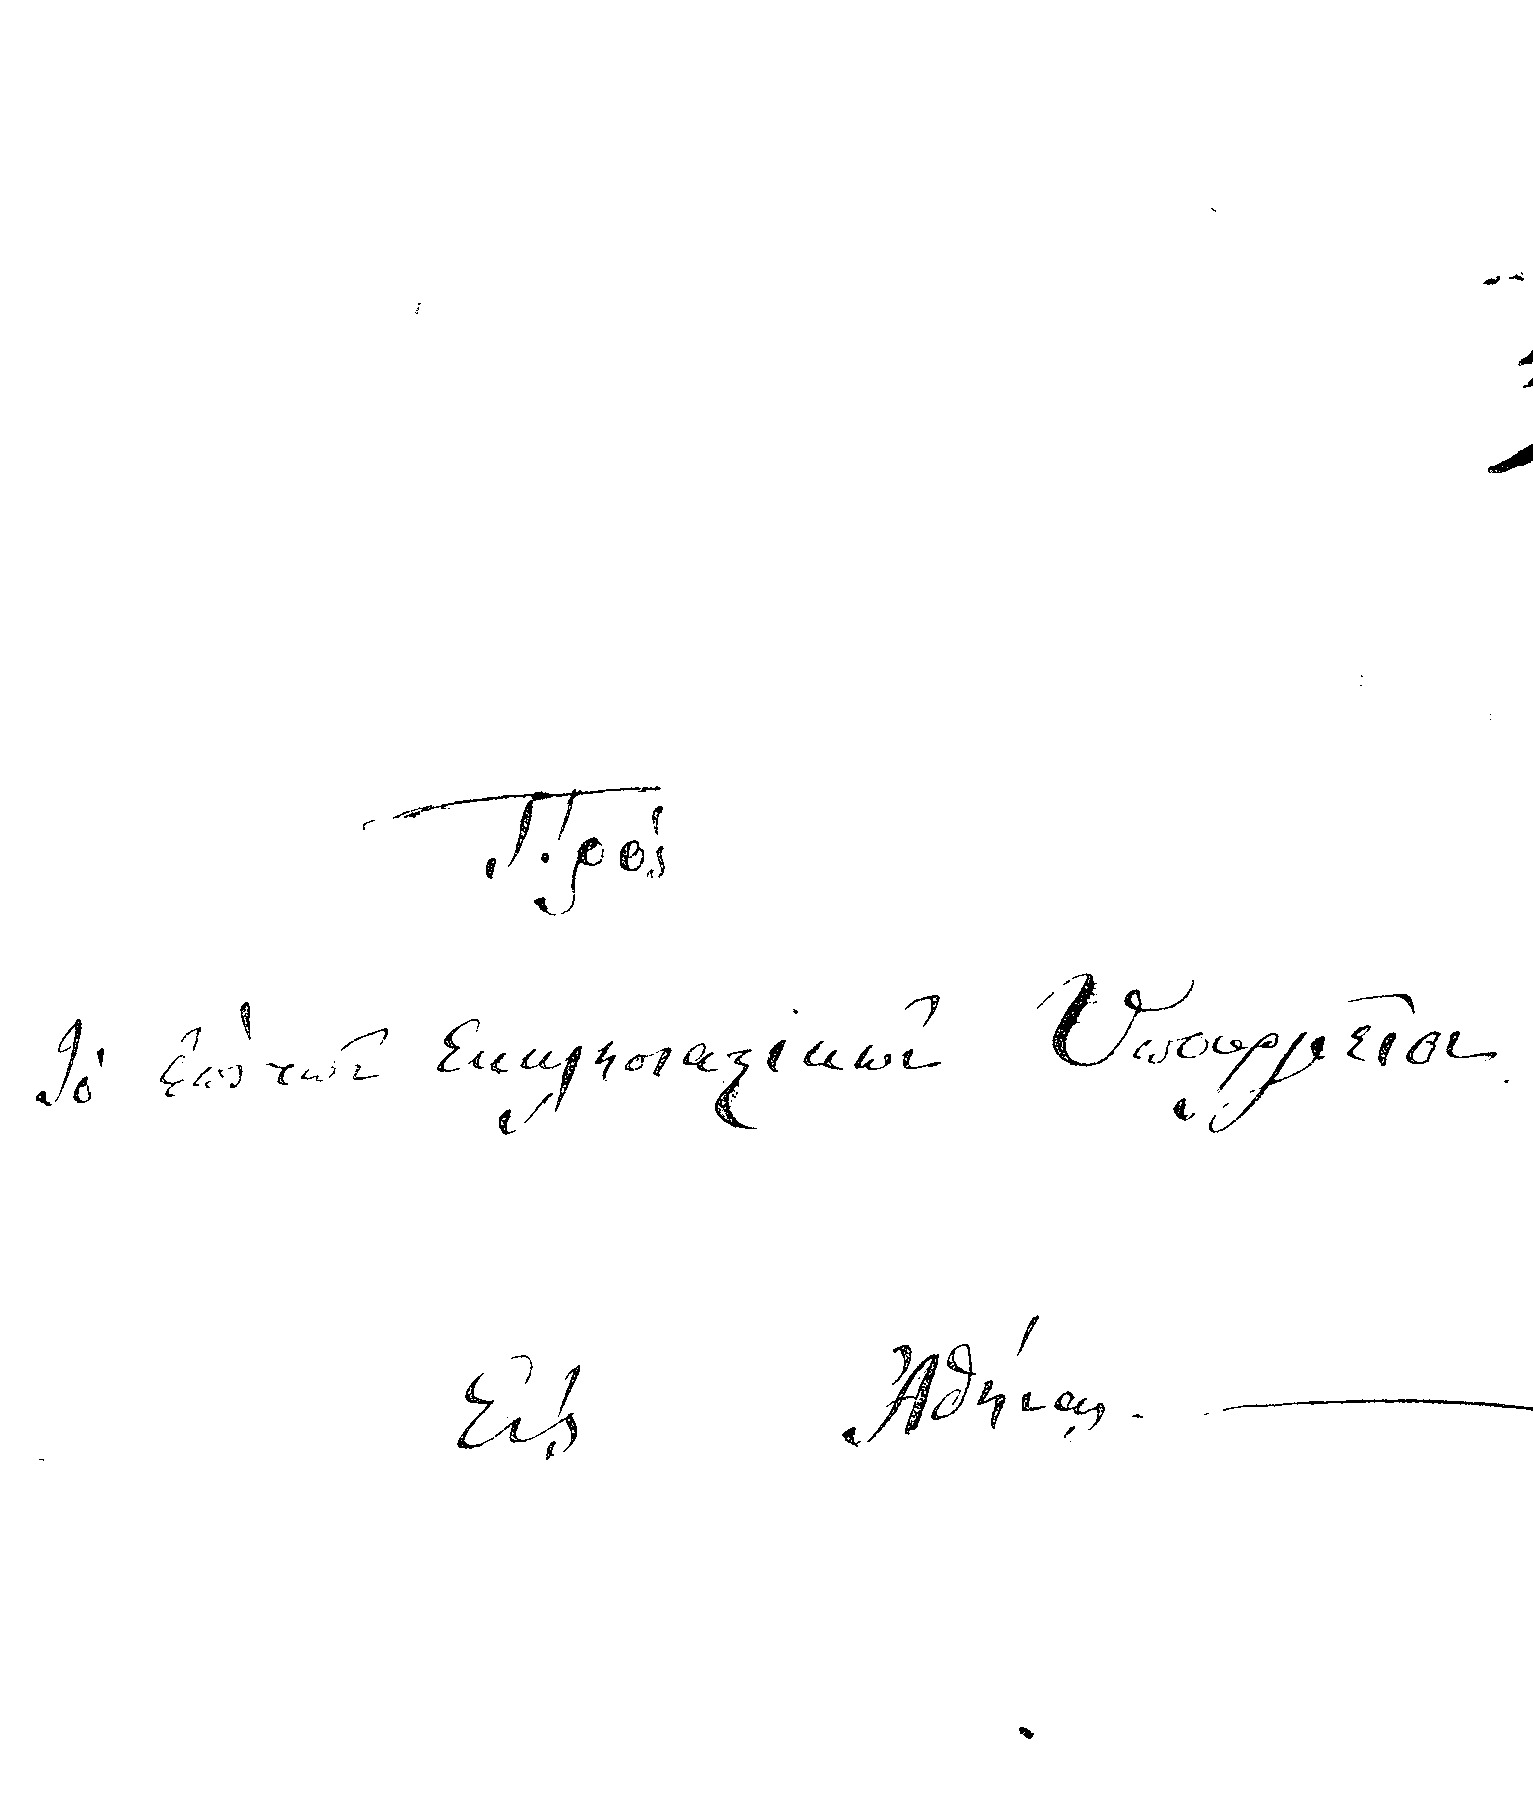 Πρὸς
Τὸ ἐπὶ τῶν Ἐκκλησιαστικῶν Ὑπουργεῖον
Εἰς Ἀθήνας.